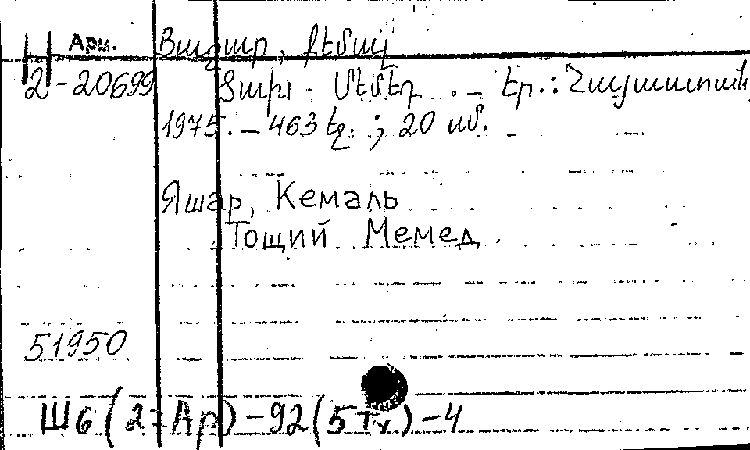 Арм. Յաշար, Քեմալ
2-20699 Ցախ Մեմեդ. - Եր.: Հայաստան,
1975. - 463 էջ. ; 20 սմ.
Яшар, Кемаль
Тощий Мемед
51950
Ш6(2=Ар)-92(5Ту)-4